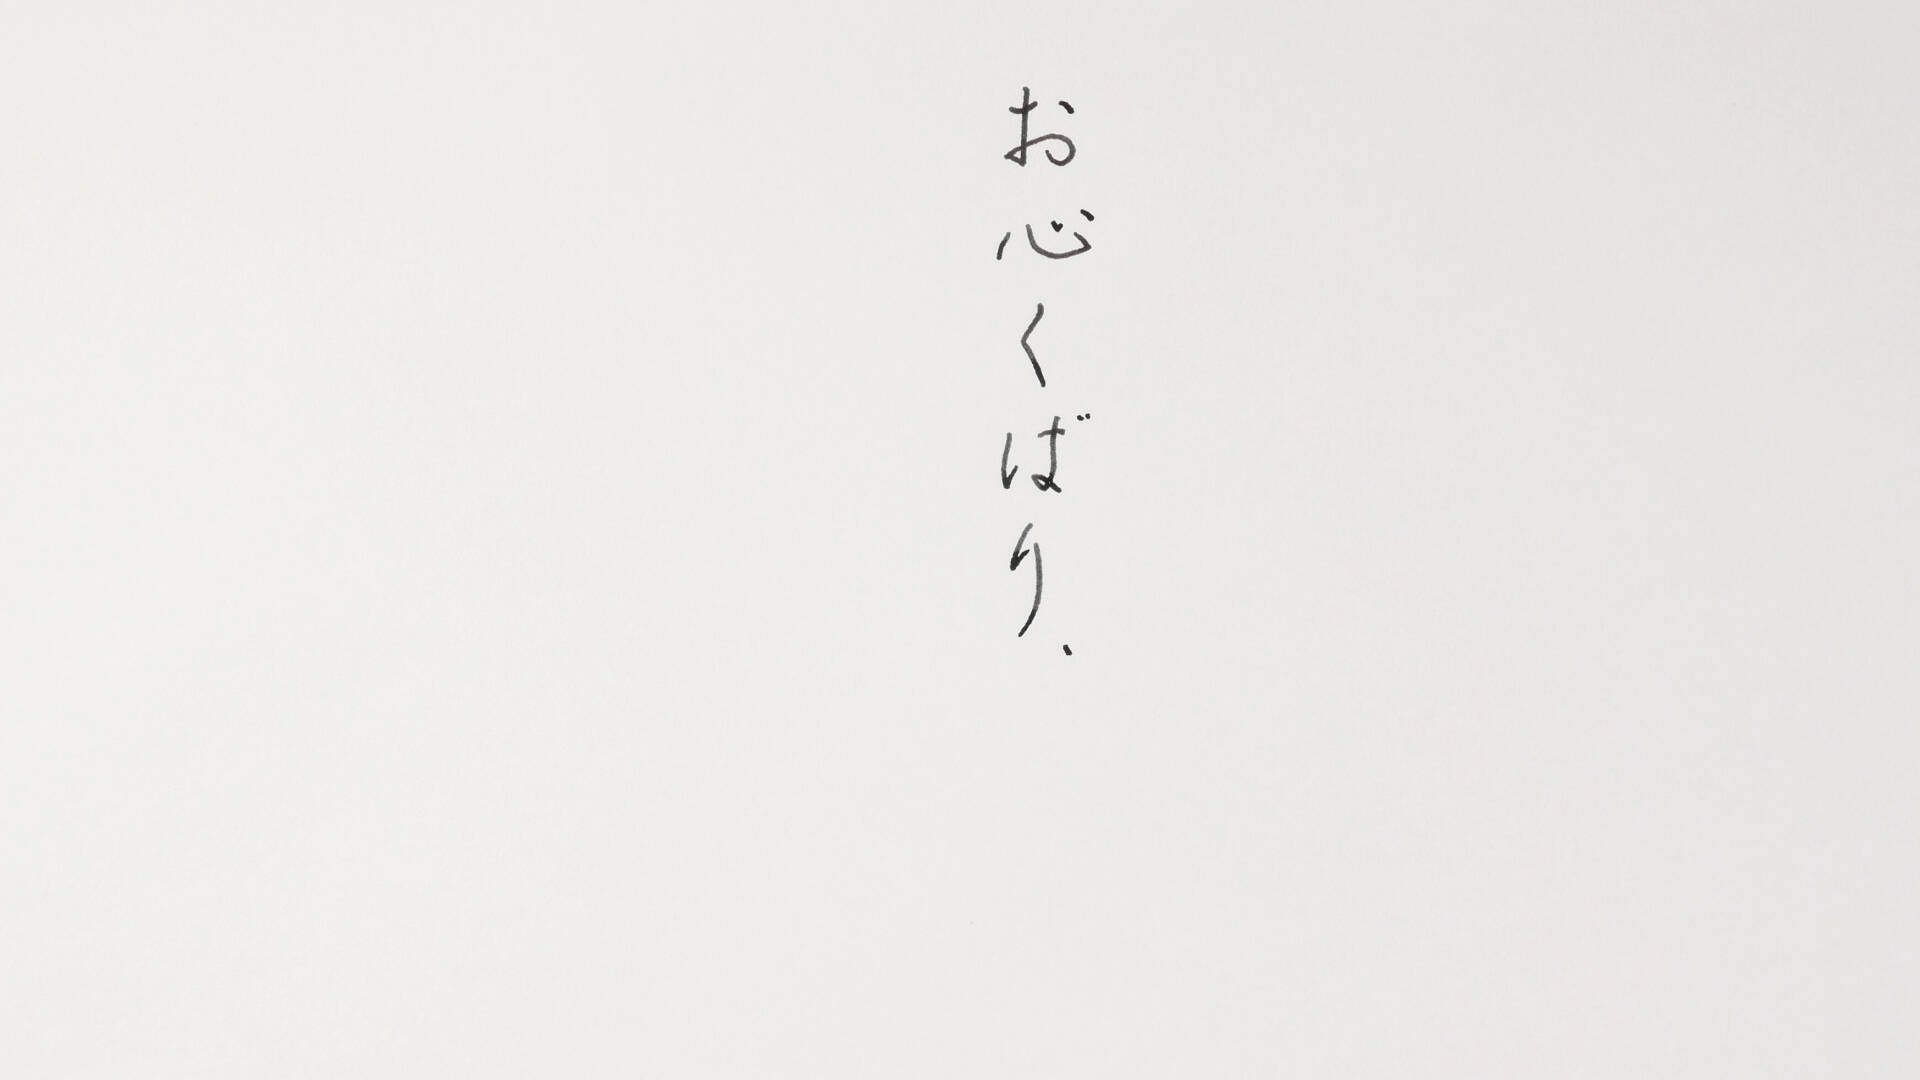 お心くばり、